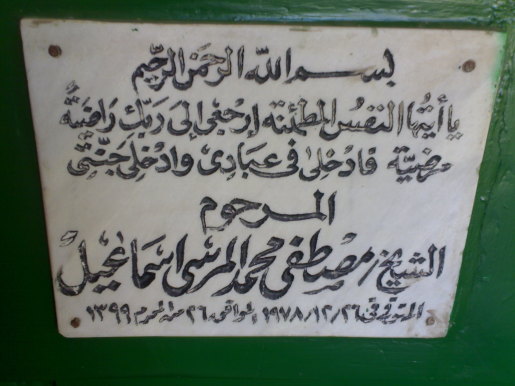 بسم الله الرحمن الرحيم
يا أيتها النفس المطمئنة إرجعي إلى ربك راضية
مرضية فادخلى فى عبادى وادخلى جنتى
المرحوم
الشيخ/ مصطفى محمد المرسى اسماعيل
المتوفى فى ٢٦/١٢/١٩٧٨ الموافق ٢٦ من محرم ١٣٩٩